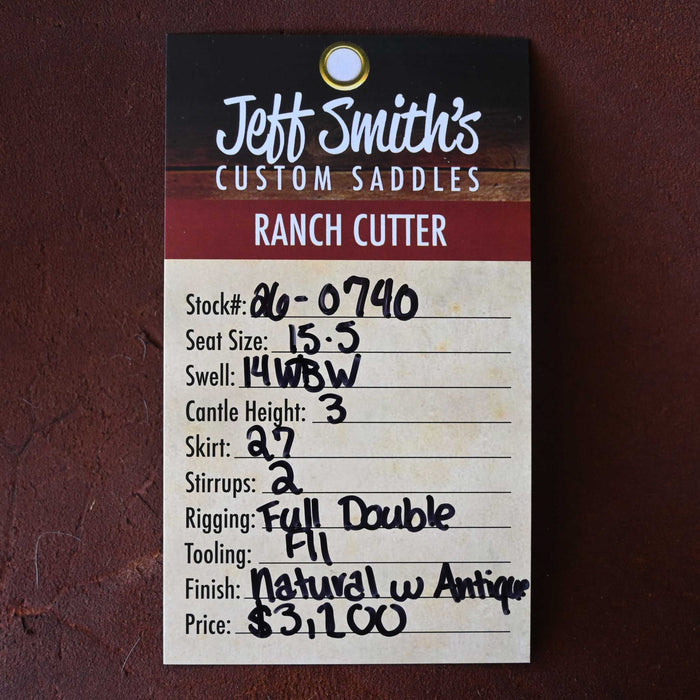 Jeff Smith's
CUSTOM SADDLES
RANCH CUTTER
Stock#: 26-0740
Seat Size: 15.5
Swell: 14WBW
Cantle Height: 3
Skirt: 27
Stirrups: 2
Rigging: Full Double
Tooling:
Finish: Natural w Antique
Price: $3,200